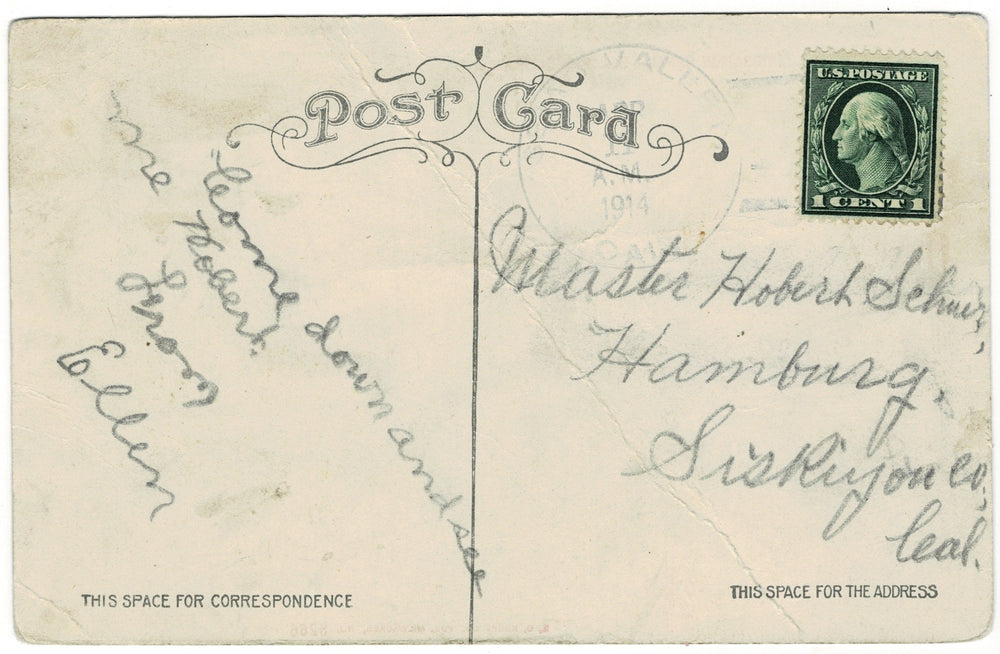 Post Card
U.S. POSTAGE
1 CENT 1
A.M.
1914
CAL
Come down and see
me Hobert.
From
Ellen
Master Hobert
Hamburg.
Siskiyou Co.
Cal.
THIS SPACE FOR CORRESPONDENCE
THIS SPACE FOR THE ADDRESS